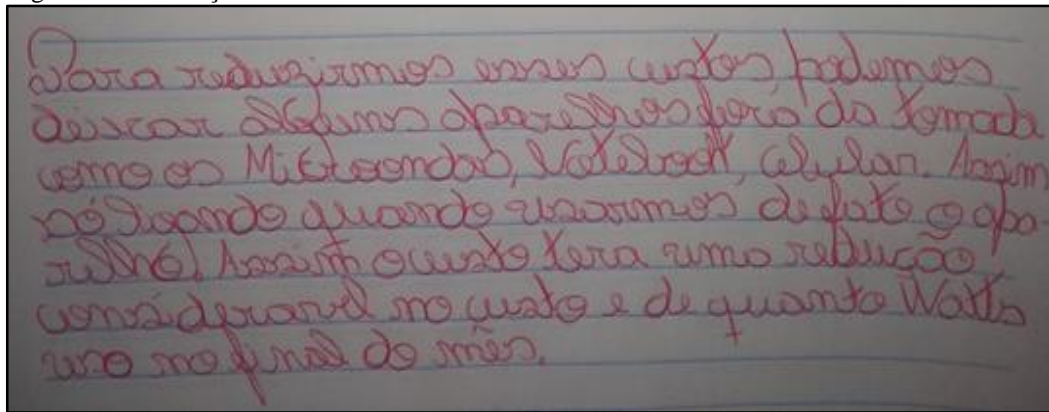 Para reduzirmos esses custos podemos
deixar alguns aparelhos fora da tomada
como os Microondas, Notebook, Celular. Assim
só ligando quando usarmos de fato o apa-
relho. Assim o custo tera uma redução
consideravel no custo e de quanto Watts
uso no final do mês.